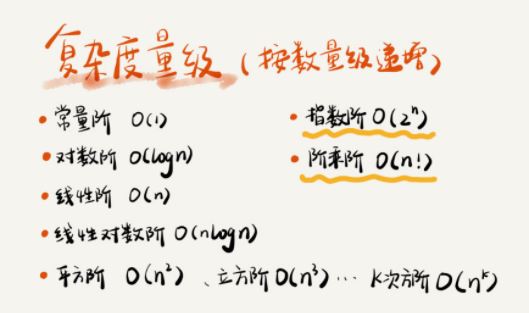 复杂度量级（按数量级递增）
• 常量阶 O(1)
• 对数阶 O(logn)
• 线性阶 O(n)
• 线性对数阶 O(nlogn)
• 平方阶 O(n²)、立方阶 O(n³) ⋯ k次方阶 O(nᵏ)
• 指数阶 O(2ⁿ)
• 阶乘阶 O(n!)